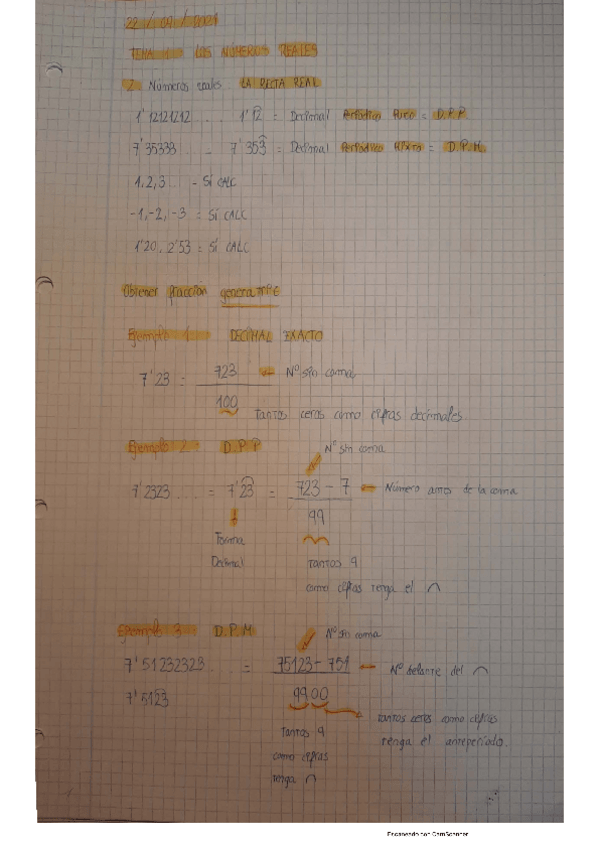 22 / 09 / 2021
TEMA 1: LOS NÚMEROS REALES
2 Números reales. LA RECTA REAL
1'12121212 ... 1'12 = Decimal Periódico Puro = D.P.P
7'35333 ... 7'353 = Decimal Periódico Mixto = D.P.M
1, 2, 3 - SÍ CALC
-1, -2, -3 = SÍ CALC
1'20, 2'53 = SÍ CALC
Obtener fracción generatriz
Ejemplo 1 DECIMAL EXACTO
7'23 = 723 / 100 Nº sin coma
Tantos ceros como cifras decimales
Ejemplo 2 D.P.P Nº sin coma
7'2323 ... = 7'23 = 723 - 7 / 99 Número antes de la coma
Forma Decimal
Tantos 9 como cifras tenga el ⌒
Ejemplo 3 D.P.M Nº sin coma
7'51232323 ... = 75123 - 751 / 9900 Nº delante del ⌒
7'5123
Tantos 9 como cifras tenga ⌒
tantos ceros como cifras tenga el anteperíodo.
Escaneado con CamScanner